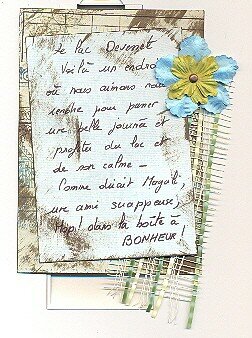 Le Lac Devesset
Voilà un endroit
où nous aimons nous
rendre pour passer
une belle journée et
profiter du lac et
de son calme -
Comme dirait Magali,
une amie scrappeuse,
Hop! dans la boîte à
BONHEUR!